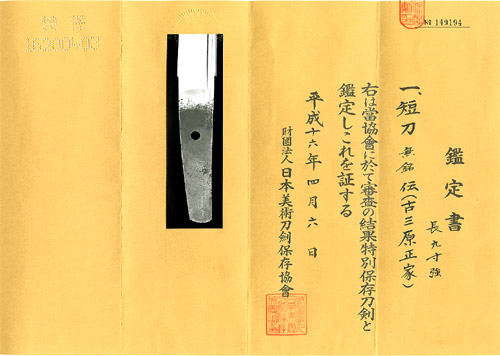 № 149194
鑑定書
一、短刀 無銘 伝(古三原正家)
長九寸強
右は當協會に於て審査の結果特別保存刀剣と
鑑定しこれを証する
平成十六年四月六日
財團法人 日本美術刀剣保存協會